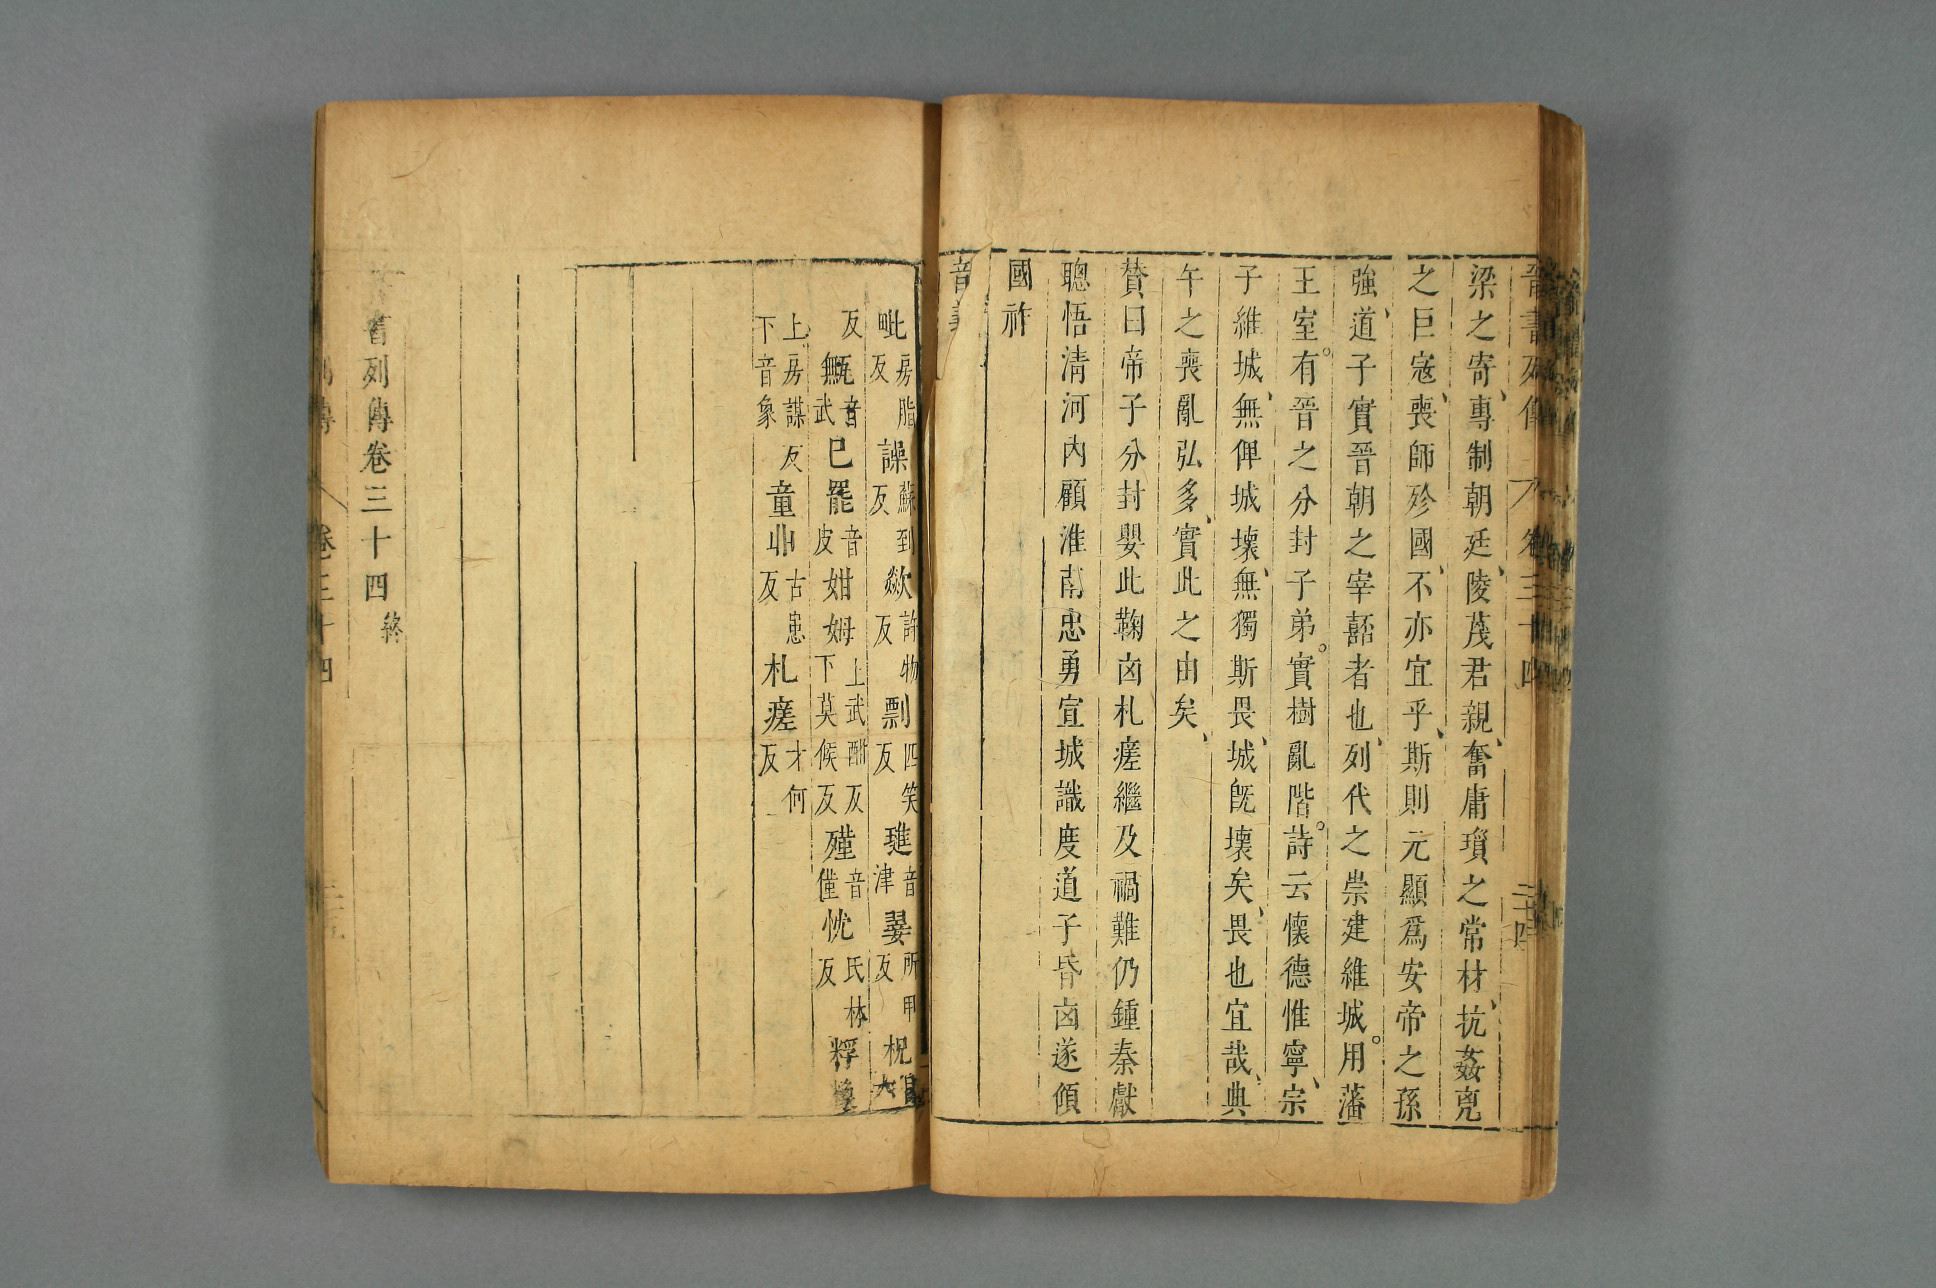 晉書列傳 卷三十四
梁之寄專制朝廷陵蔑君親奮庸瑣之常材抗姦兇
之巨寇喪師殄國不亦宜乎斯則元顯爲安帝之孫
強道子實晉朝之宰嚭者也列代之崇建維城用藩
王室有晉之分封子弟實樹亂階詩云懷德惟寧宗
子維城無俾城壞無獨斯畏城旣壞矣畏也宜哉典
午之喪亂弘多實此之由矣
贊曰帝子分封嬰此鞠凶札瘥繼及禍難仍鍾秦獻
聰悟淸河內顧淮南忠勇宣城識度道子昏凶遂傾
國祚
音義
毗房脂反 譟蘇到反 歘許物反 剽四笑反 璡音津 翣所甲反 柷昌六
反 𤬛音無武 巳罷音皮 姏姆上武酣反下莫候反 殣音僅 忱氏林反 粰𥹷
上房謀反下音象 童丱古患反 札瘥才何反
書列傳卷三十四終
卷三十四